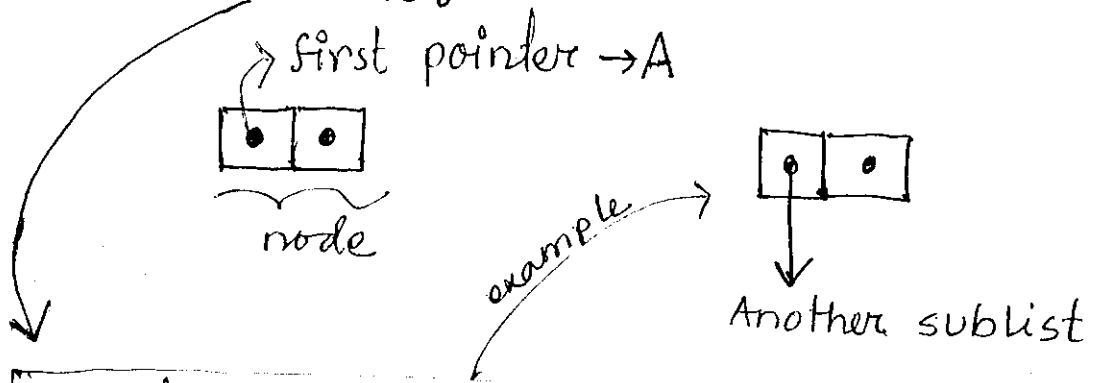 first pointer → A
node
example
Another sublist